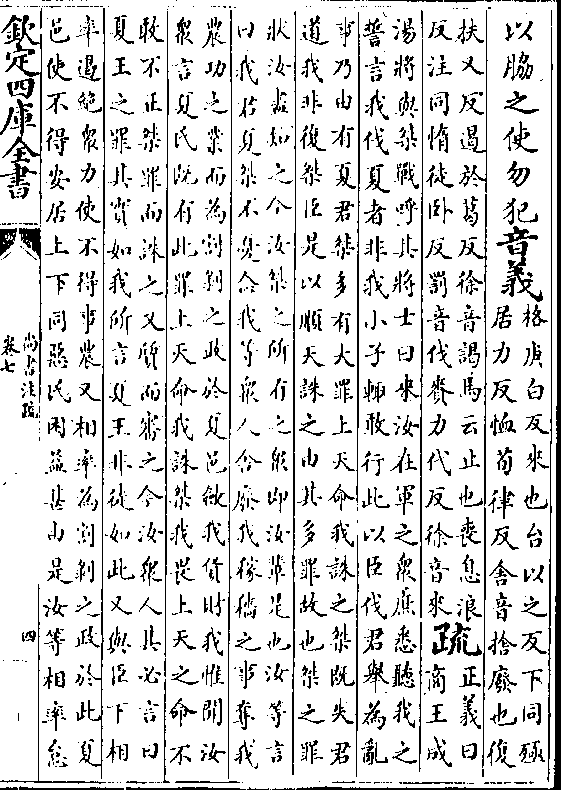 以脇之使勿犯音義格庚白反來也台以之反下同殛
居力反恤荀律反舍音捨廢也復
扶又反遏於葛反徐音謁馬云止也喪息浪
反注同惰徒卧反罰音伐賚力代反徐音來疏正義曰
商王成
湯將與桀戰呼其將士曰來汝在軍之衆庶悉聽我之
誓言我伐夏者非我小子輒敢行此以臣伐君舉為亂
事乃由有夏君桀多有大罪上天命我誅之桀既失君
道我非復桀臣是以順天誅之由其多罪故也桀之罪
狀汝盡知之今汝桀之所有之衆即汝輩是也汝等言
曰我君夏桀不憂念我等衆人舍廢我稼穡之事奪我
農功之業而為割剝之政於夏邑斂我貨財我惟聞汝
衆言夏氏既有此罪上天命我誅桀我畏上天之命不
敢不正桀罪而誅之又質而審之今汝衆人其必言曰
夏王之罪其實如我所言夏王非徒如此又與臣下相
率遏絶衆力使不得事農又相率為割剝之政於此夏
邑使不得安居上下同惡民困益甚由是汝等相率怠
欽定四庫全書
尚書注疏
卷七
四